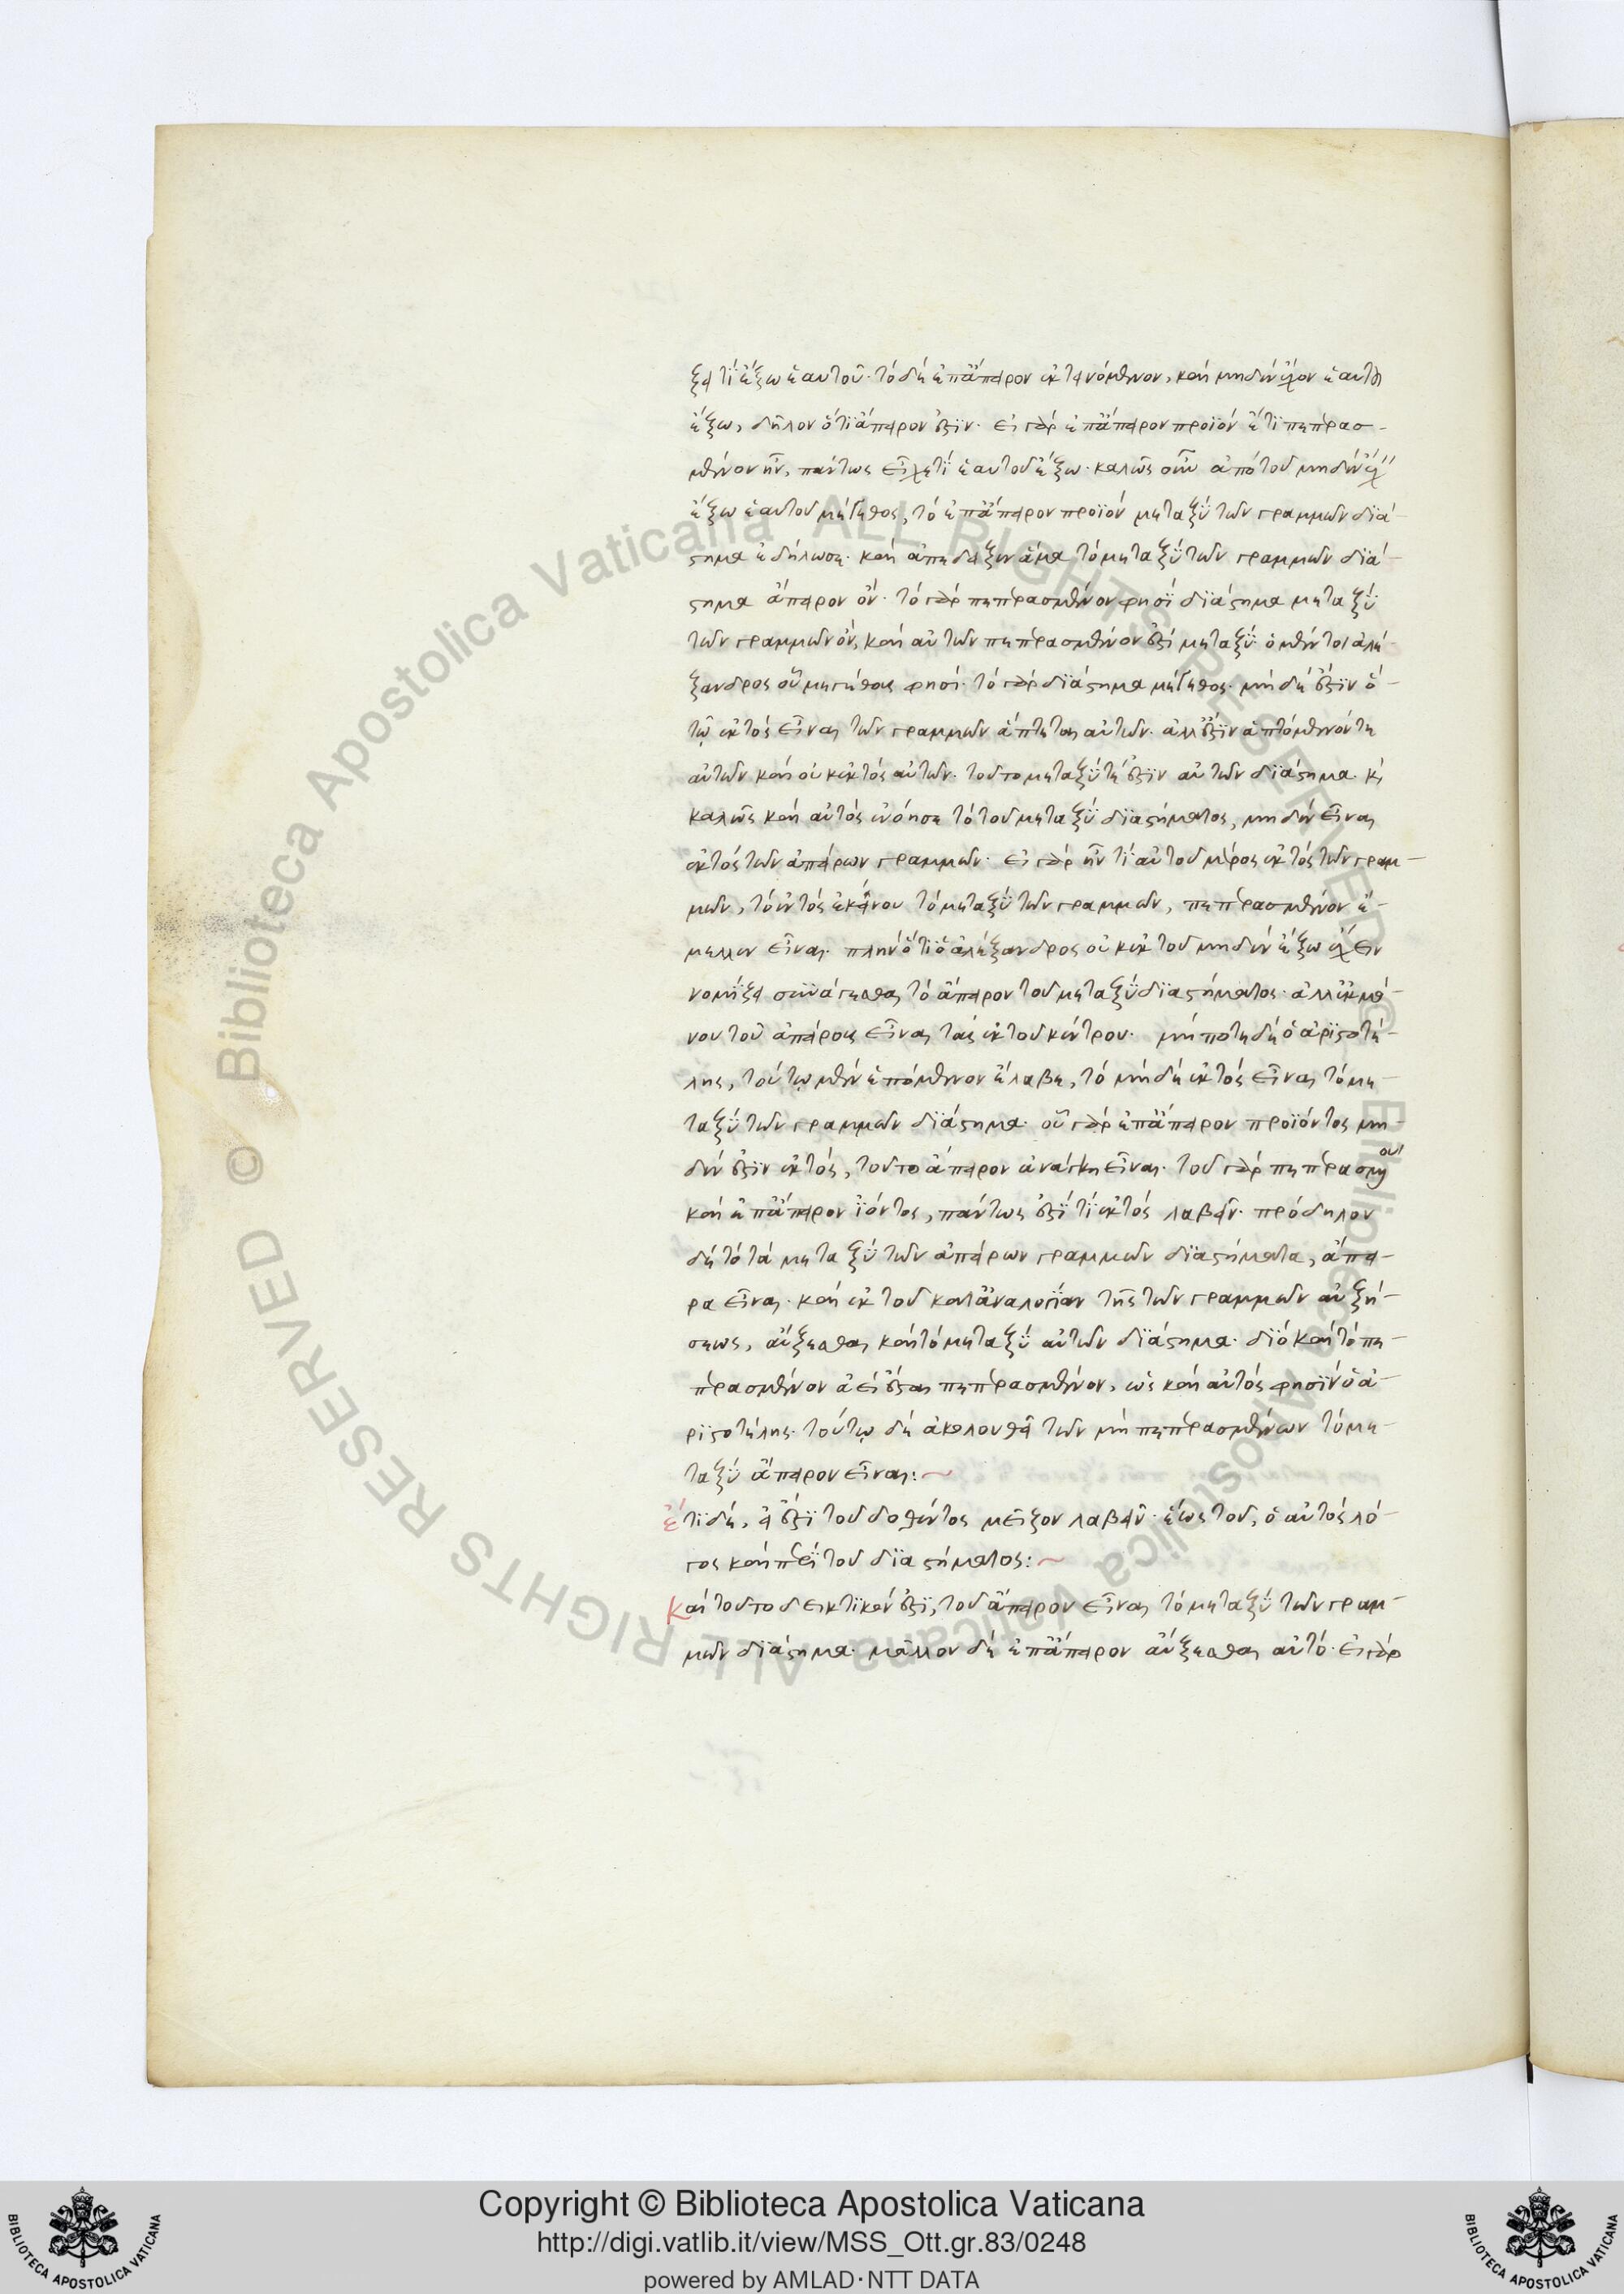 ξει τί ἔξω ἑαυτοῦ· τὸ δὲ ἐπ' ἄπειρον ἐκτεινόμενον, καὶ μηδὲν ἔχον ἑαυτοῦ
ἔξω, δῆλον ὅτι ἄπειρόν ἐστιν. εἰ γὰρ ἐπ' ἄπειρον προϊὸν ἔτι πεπερασ-
μένον ἦν, πάντως εἶχέ τι ἑαυτοῦ ἔξω. καλῶς οὖν ἀπὸ τοῦ μηδὲν ἔχειν
ἔξω ἑαυτοῦ μέγεθος, τὸ ἐπ' ἄπειρον προϊὸν μεταξὺ τῶν γραμμῶν διά-
στημα ἐδήλωσε· καὶ ἀπέδειξεν ἅμα τὸ μεταξὺ τῶν γραμμῶν διά-
στημα ἄπειρον ὄν. τὸ γὰρ πεπερασμένον φησὶ διάστημα μεταξὺ
τῶν γραμμῶν ὄν, καὶ αὐτῶν πεπερασμένον ἐστὶ μεταξύ· ὁ μέντοι ἀλέ-
ξανδρος οὗ μεγέθους φησί· τὸ γὰρ διάστημα μέγεθος· μὴ δέ ἐστιν ὃ
τῷ ἐκτὸς εἶναι τῶν γραμμῶν ἅπτεται αὐτῶν· ἀλλ' ἔστιν ἁπτόμενόν τε
αὐτῶν καὶ οὐκ ἐκτὸς αὐτῶν· τοῦτο μεταξύ τέ ἐστιν αὐτῶν διάστημα· κ
καλῶς καὶ αὐτὸς ἐνόησε τὸ τοῦ μεταξὺ διαστήματος, μηδὲν εἶναι
ἐκτὸς τῶν ἀπείρων γραμμῶν· εἰ γὰρ ἦν τὶ αὐτοῦ μέρος ἐκτὸς τῶν γραμ-
μῶν, τὸ ἐντὸς ἐκείνου τὸ μεταξὺ τῶν γραμμῶν, πεπερασμένον ἔ-
μελλεν εἶναι· πλὴν ὅτι ὁ ἀλέξανδρος οὐκ ἐκ τοῦ μηδὲν ἔξω ἔχειν
νομίζει συνάγεσθαι τὸ ἄπειρον τοῦ μεταξὺ διαστήματος· ἀλλ' ἐκ μό-
νου τοῦ ἀπείρους εἶναι τὰς ἐκ τοῦ κέντρου· μήποτε δὲ ὁ ἀριστοτέ-
λης, τούτῳ μὲν ἑπόμενον ἔλαβε, τὸ μηδὲ ἐκτὸς εἶναι τὸ με-
ταξὺ τῶν γραμμῶν διάστημα· οὗ γὰρ ἐπ' ἄπειρον προϊόντος μη-
δέν ἐστιν ἐκτός, τοῦτο ἄπειρον ἀνάγκη εἶναι· τοῦ γὰρ πεπερασμένου
καὶ ἐπ' ἄπειρον ἰόντος, πάντως ἐστί τι ἐκτὸς λαβεῖν· πρόδηλον
δὲ τὸ τὰ μεταξὺ τῶν ἀπείρων γραμμῶν διαστήματα, ἄπει-
ρα εἶναι· καὶ ἐκ τοῦ κατ' ἀναλογίαν τῆς τῶν γραμμῶν αὐξή-
σεως, αὔξεσθαι καὶ τὸ μεταξὺ αὐτῶν διάστημα· διὸ καὶ τὸ πε-
περασμένον ἀεὶ ἔσται πεπερασμένον, ὡς καὶ αὐτός φησιν ὁ ἀ-
ριστοτέλης· τούτῳ δὲ ἀκολουθεῖ τῶν μὴ πεπερασμένων τὸ με-
ταξὺ ἄπειρον εἶναι:~
ἔτι δέ, εἰ ἔστι τοῦ δοθέντος μεῖζον λαβεῖν· ἕως τοῦ, ὁ αὐτὸς λό-
γος καὶ περὶ τοῦ διαστήματος:~
Καὶ τοῦτο δεικτικόν ἐστι, τοῦ ἄπειρον εἶναι τὸ μεταξὺ τῶν γραμ-
μῶν διάστημα· μᾶλλον δὲ ἐπ' ἄπειρον αὔξεσθαι αὐτό· εἰ γὰρ
Copyright © Biblioteca Apostolica Vaticana
http://digi.vatlib.it/view/MSS_Ott.gr.83/0248
powered by AMLAD·NTT DATA